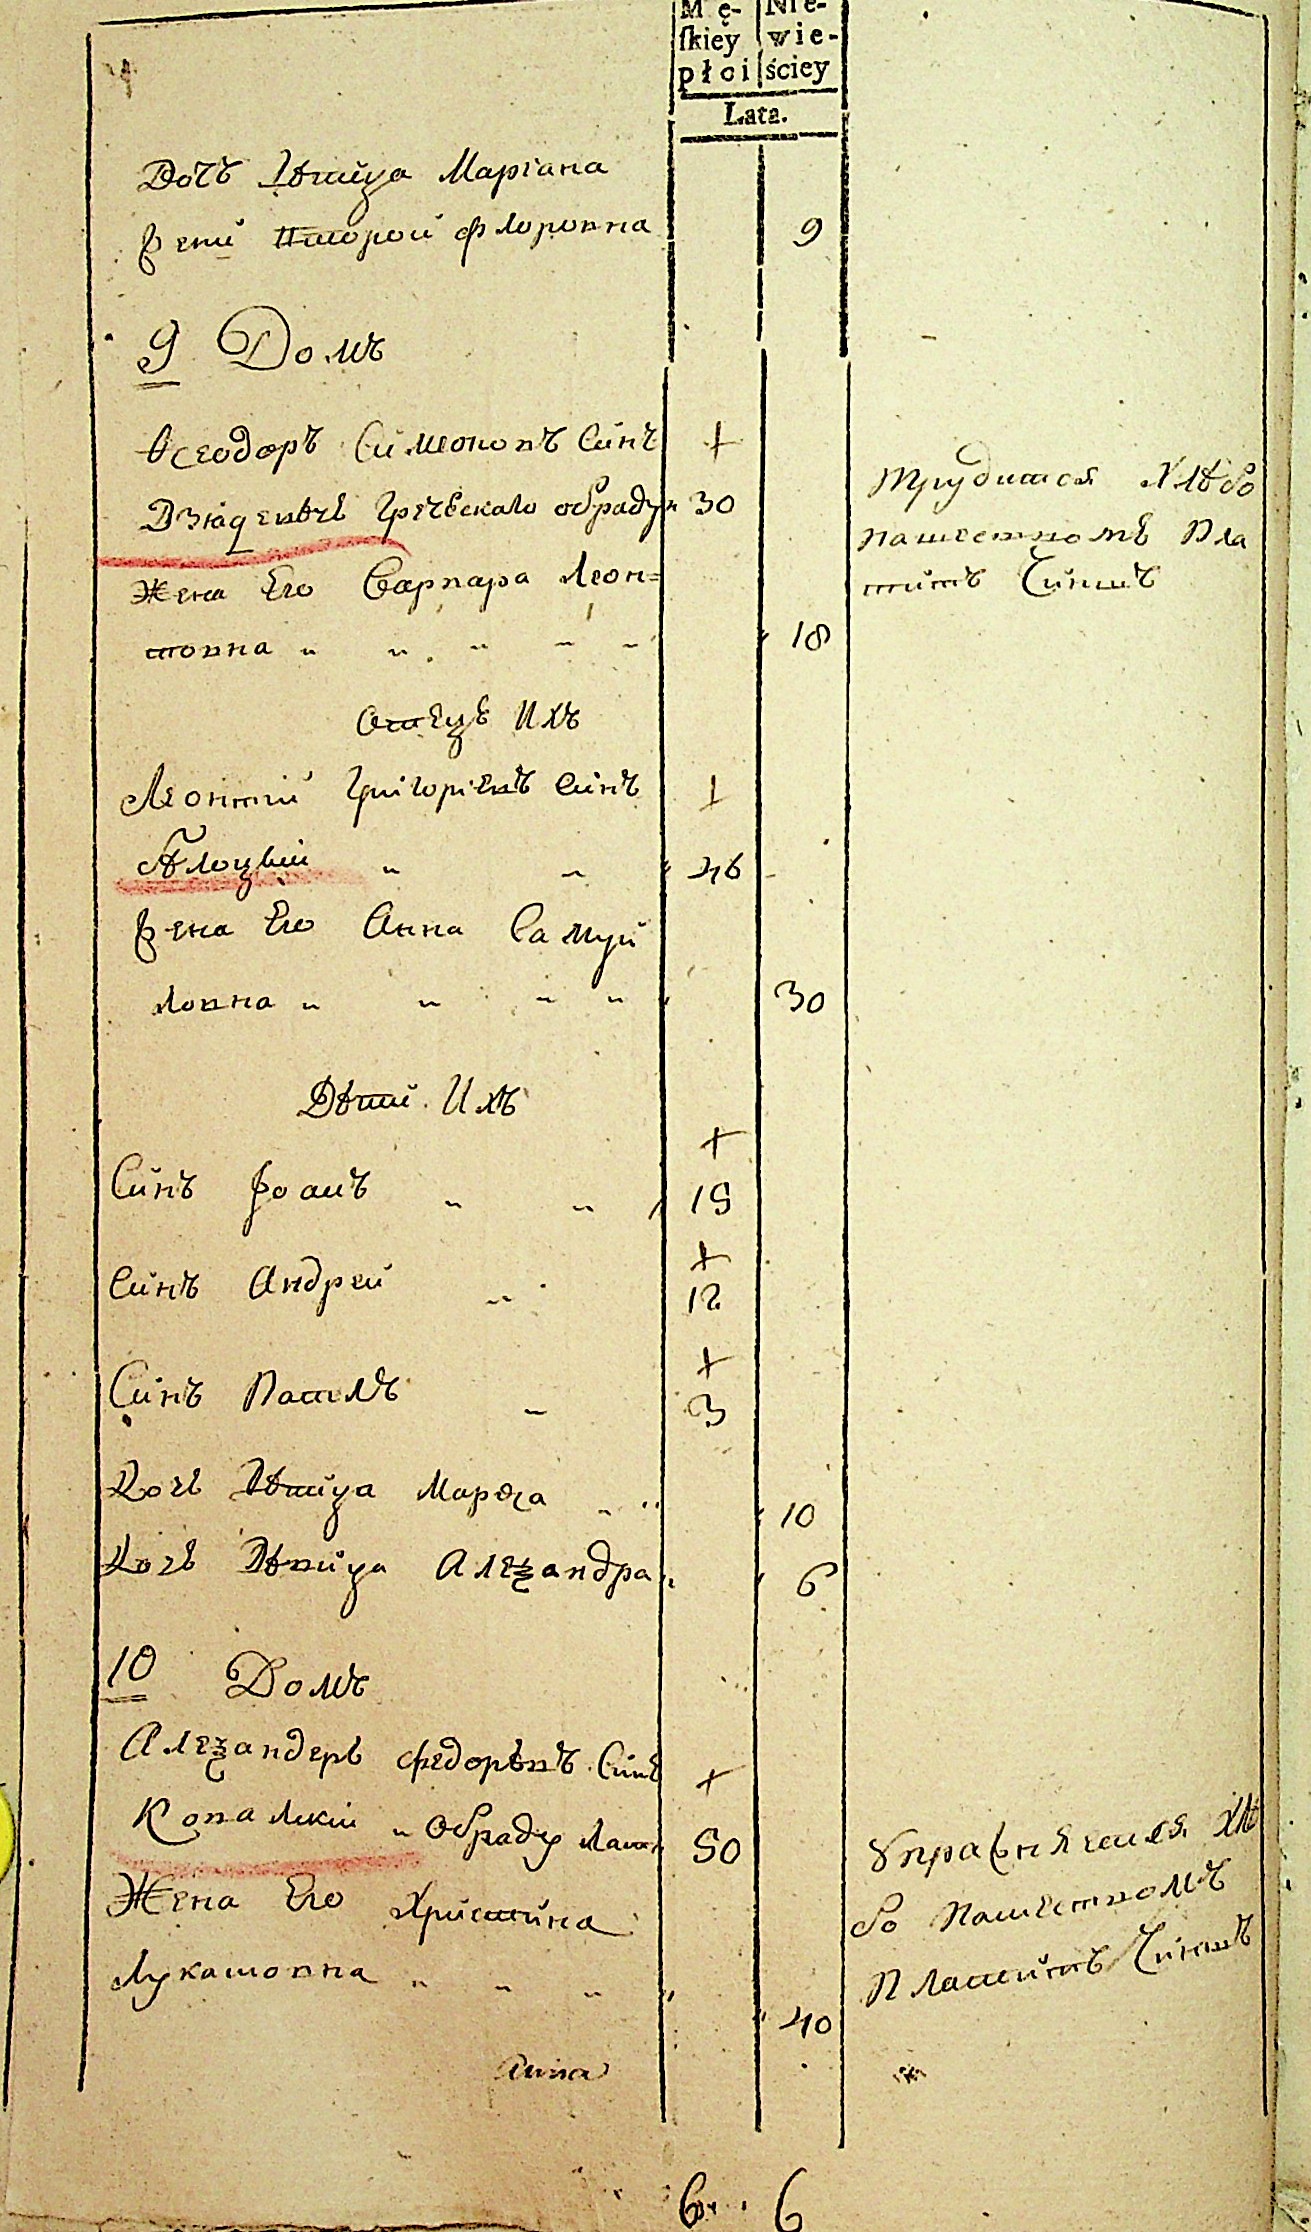 Mę- Nie-
ſkiey wie-
płci ściey
Lata.
Дочъ Дѣвица Мариана
жени второй Флоровна 9
9 Домъ
Ѳеодоръ Симеоновъ Синъ +
Дзіяцевичъ Греческаго обряду 30
Трудится хлѣбо
пашествомъ пла
титъ Чиншъ
Жена Его Варвара Леон=
товна 18
Отецъ Ихъ
Леонтий Григориевъ Синъ +
46
Жена Его Анна Самуй
ловна 30
Дѣти Ихъ
+
Синъ Іоанъ 15
+
Синъ Андрей 12
+
Синъ Павилъ 3
Дочъ Дѣвица Марѳа 10
Дочъ Дѣвица Алеѯандра 6
10 Домъ
Алеѯандеръ Федоровъ Синъ +
Ковалский Обряду Латин 50
Управляется хлѣ
бо пашествомъ
платитъ Чиншъ
Жена Его Христина
Лукашовна 40
Анна
6 6